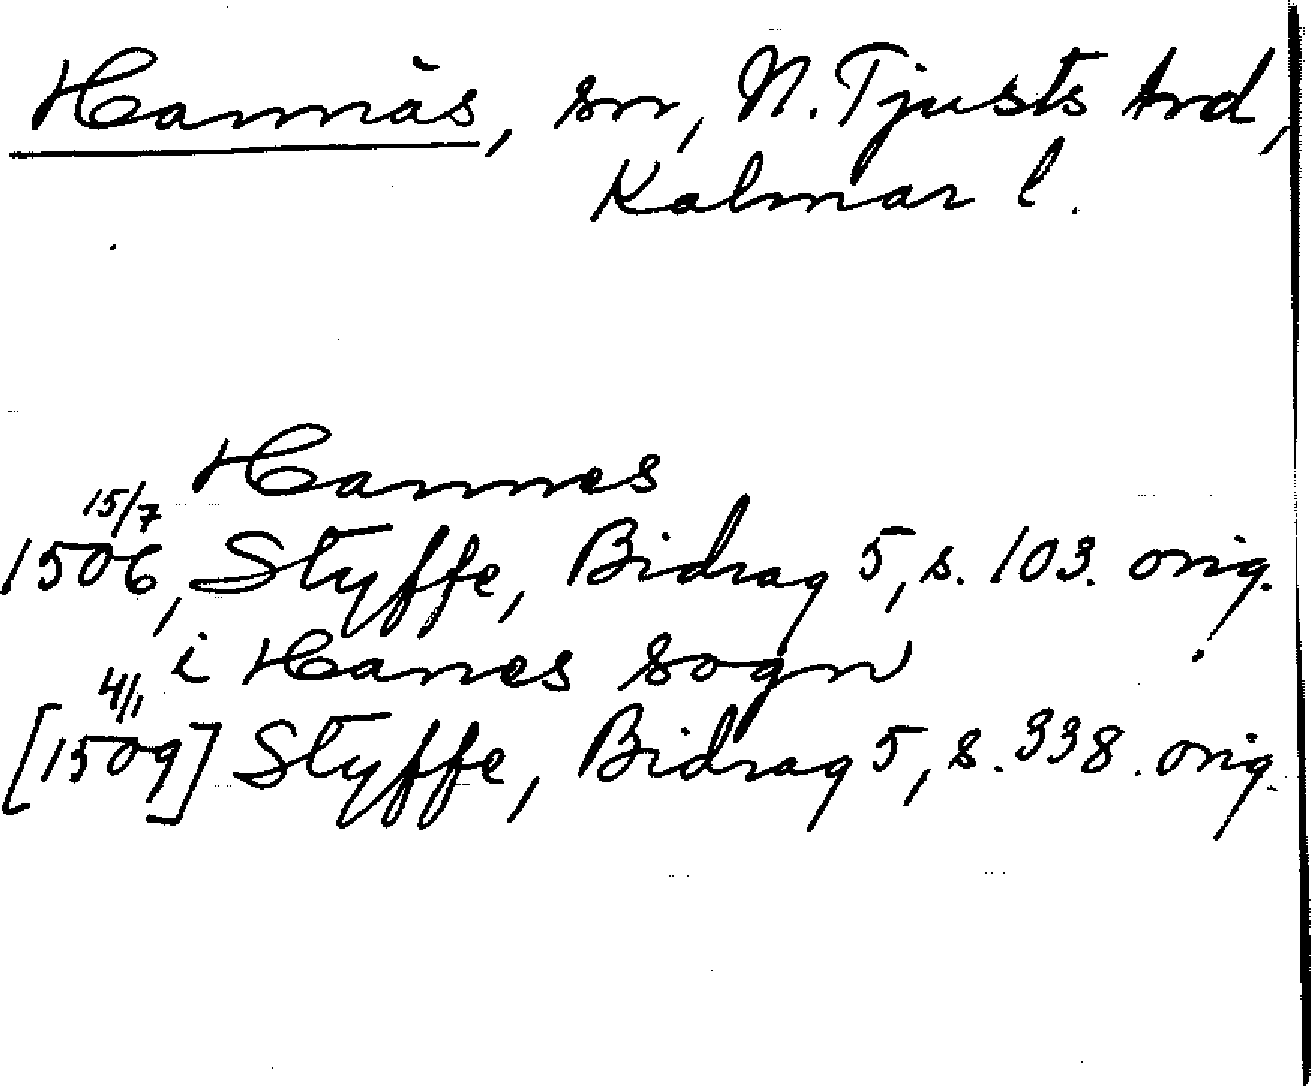 Hannäs, sn, N. Tjusts hrd,
Kalmar l.
Hannes
15/7
1506, Styffe, Bidrag 5, s. 103. orig.
i Hanes sogn
4/1
[1509] Styffe, Bidrag 5, s. 338. orig.